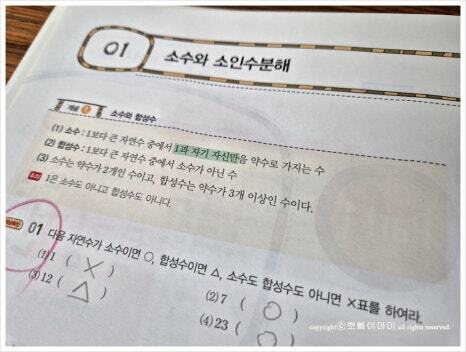 01
소수와 소인수분해
개념 1 소수와 합성수
(1) 소수 : 1보다 큰 자연수 중에서 1과 자기 자신만을 약수로 가지는 수
(2) 합성수 : 1보다 큰 자연수 중에서 소수가 아닌 수
(3) 소수는 약수가 2개인 수이고, 합성수는 약수가 3개 이상인 수이다.
주의 1은 소수도 아니고 합성수도 아니다.
01 다음 자연수가 소수이면 ○, 합성수이면 △, 소수도 합성수도 아니면 ×표를 하여라.
(1) 1 ( × )
(2) 7 ( ○ )
(3) 12 ( △ )
(4) 23 ( ○ )
copyright ⓒ뽀빠이아이 all rights reserved.